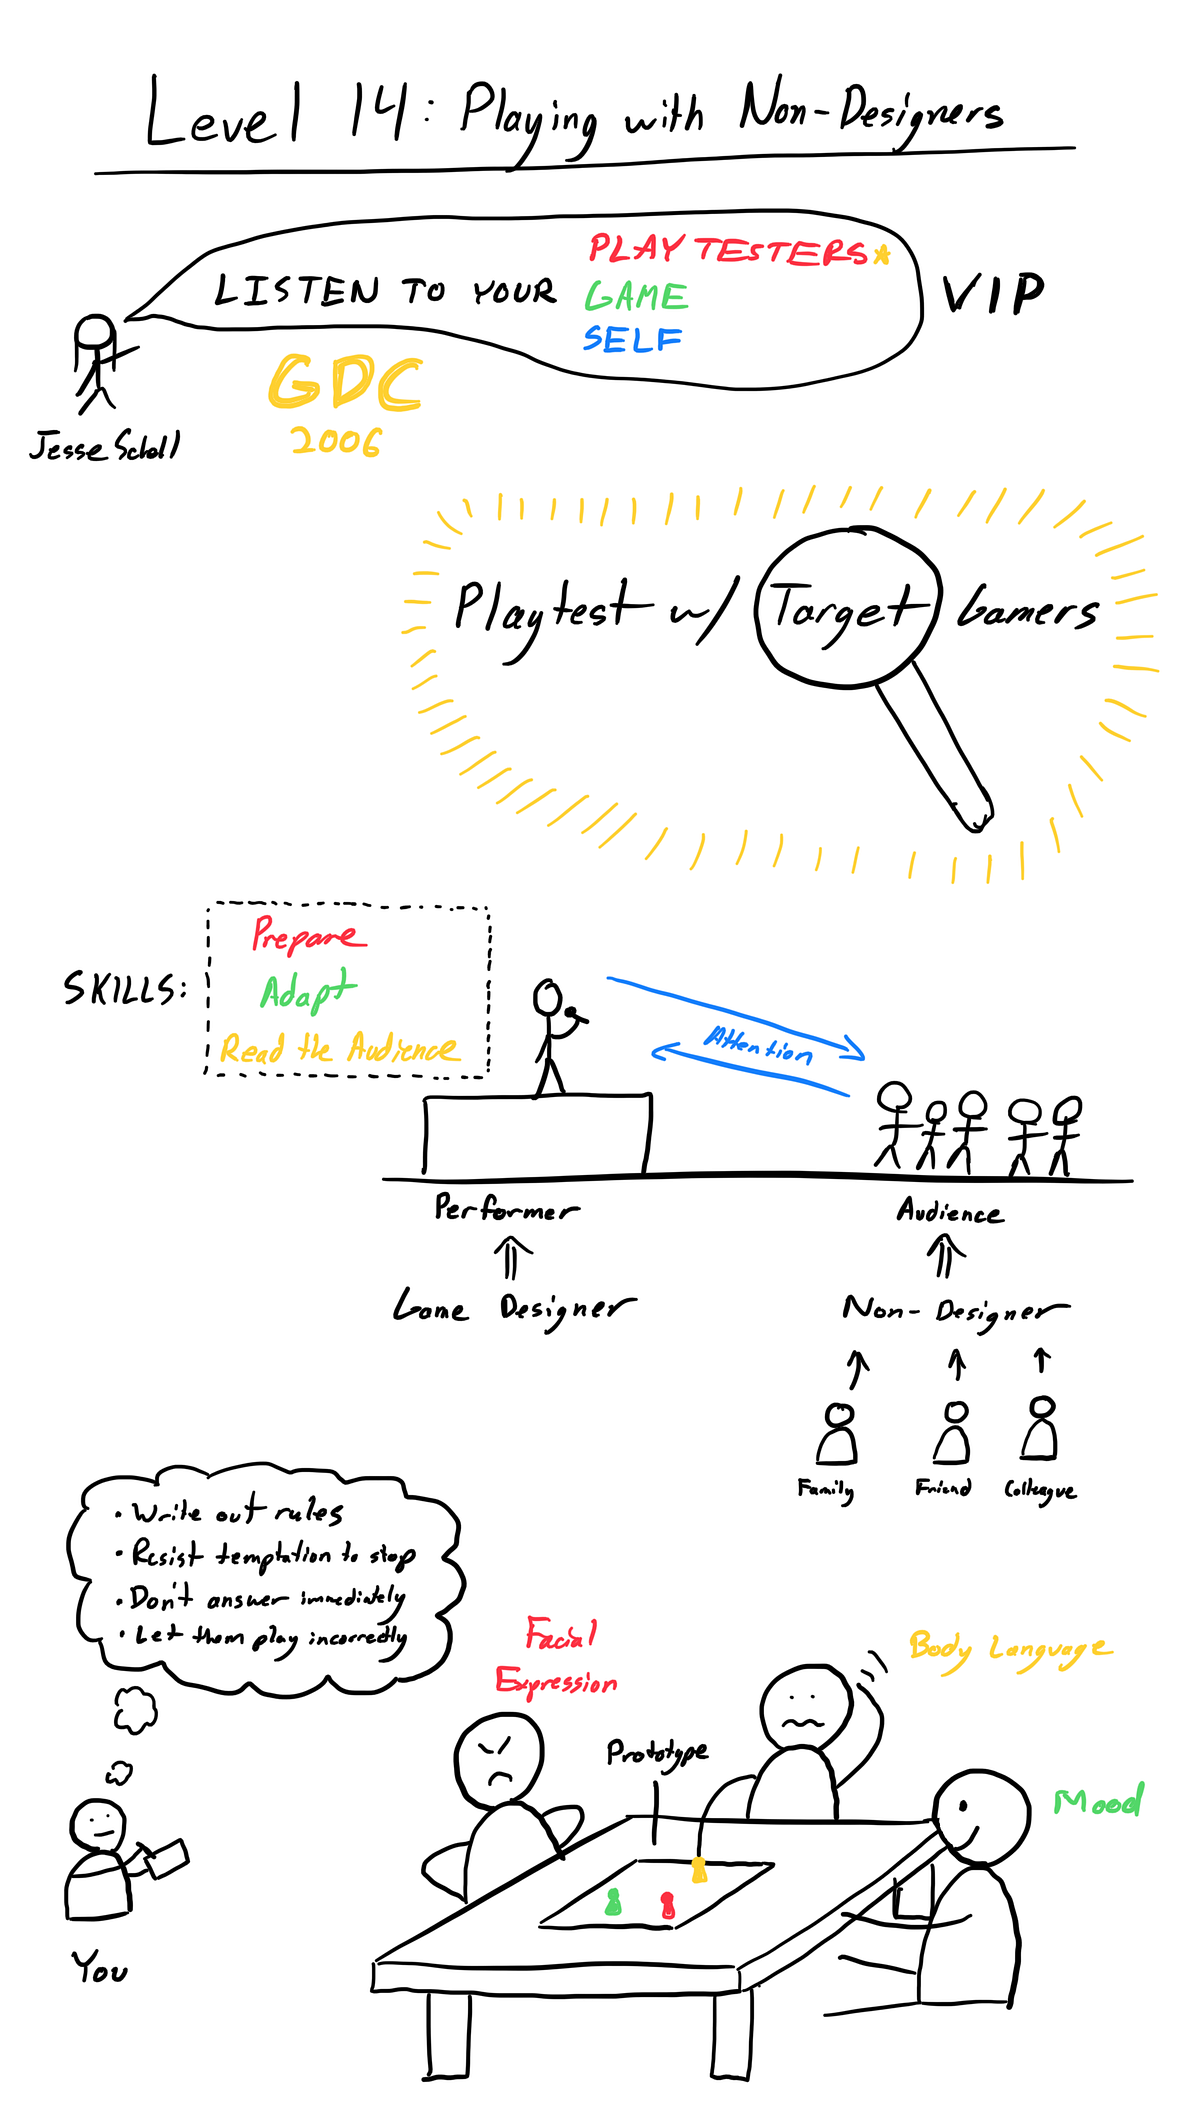 Level 14: Playing with Non-Designers
LISTEN TO YOUR
PLAYTESTERS*
GAME
SELF
VIP
GDC
2006
Jesse Schell
Playtest w/ Target Gamers
SKILLS:
Prepare
Adapt
Read the Audience
Attention
Performer
Audience
Game Designer
Non-Designer
Family
Friend
Colleague
• Write out rules
• Resist temptation to stop
• Don't answer immediately
• Let them play incorrectly
You
Facial
Expression
Prototype
Body Language
Mood